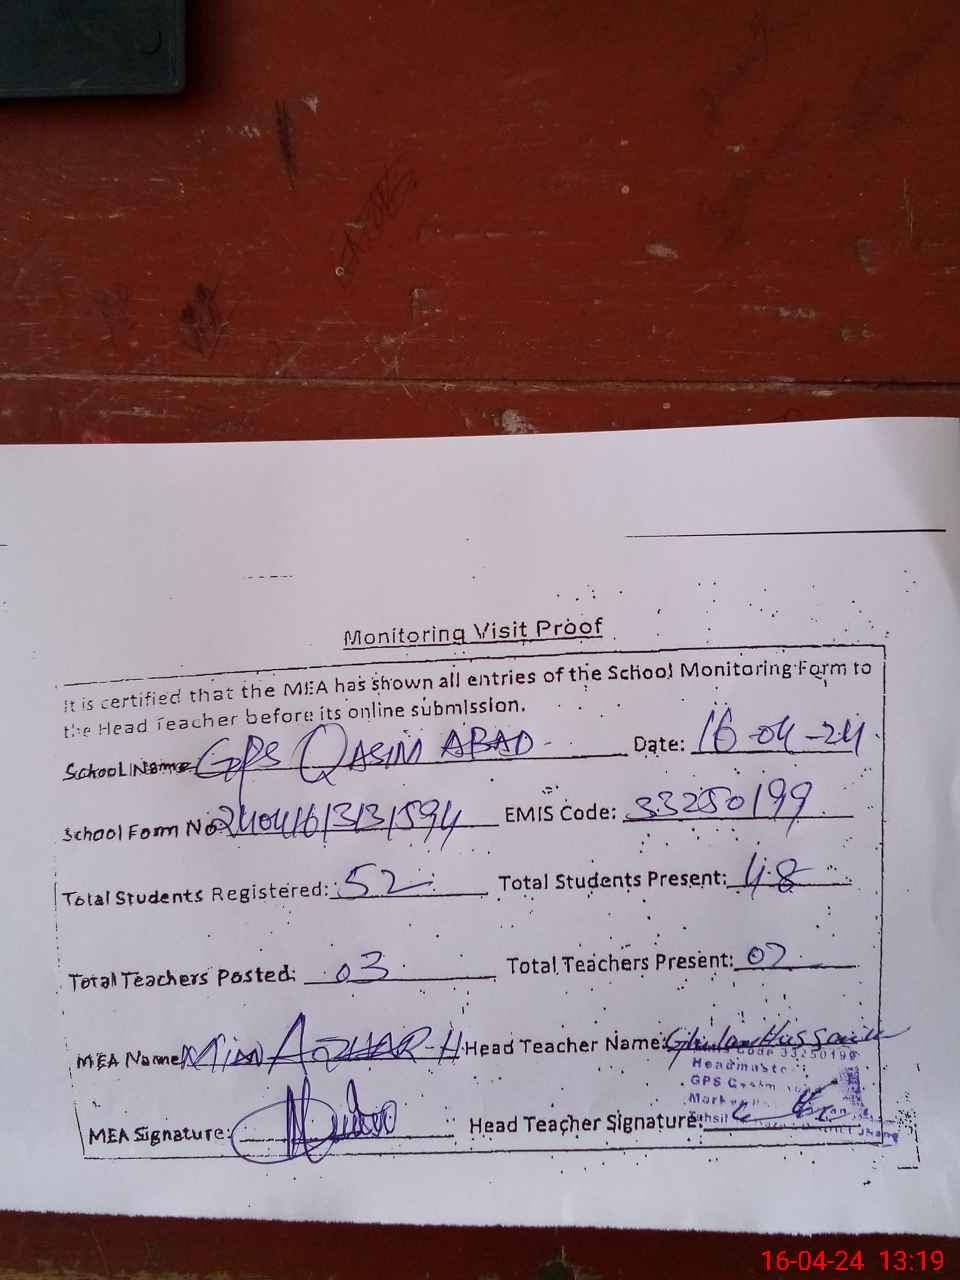 Monitoring Visit Proof
It is certified that the MEA has shown all entries of the School Monitoring Form to
the Head Teacher before its online submission.
School Name GPS QASIM ABAD Date: 16-04-24
School Form No 240416/3/31594 EMIS Code: 33250199
Total Students Registered: 52 Total Students Present: 48
Total Teachers Posted: 03 Total Teachers Present: 02
MEA Name Mian AZHAR-H Head Teacher Name: Ghulam Hussain
Code 33250199
Headmaster
GPS
MEA Signature: Head Teacher Signature:
Jhang
16-04-24 13:19